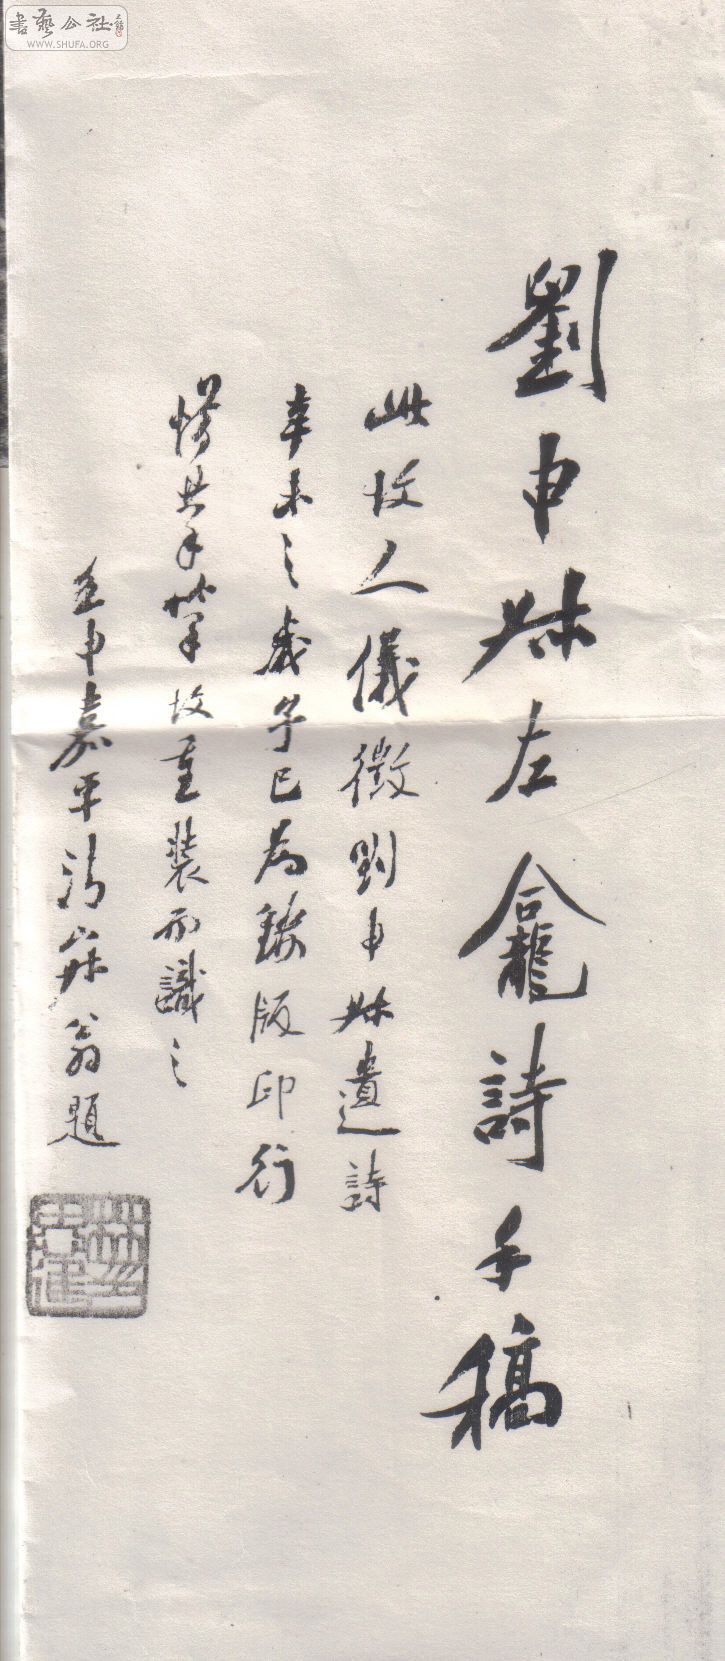 書藝公社
WWW.SHUFA.ORG
劉申叔左盦詩手稿
此故人儀徵劉申叔遺詩
辛未之歲予已為鋟版印行
惜其手蹟故重裝而識之
壬申嘉平清寐翁題